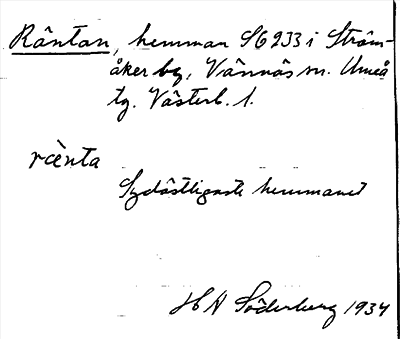 Räntan, hemman S6 233 i Ström-
åker by, Vännäs sn. Umeå
tg. Västerb. l.
rænta
Sydöstligaste hemmanet
H A Söderberg 1934